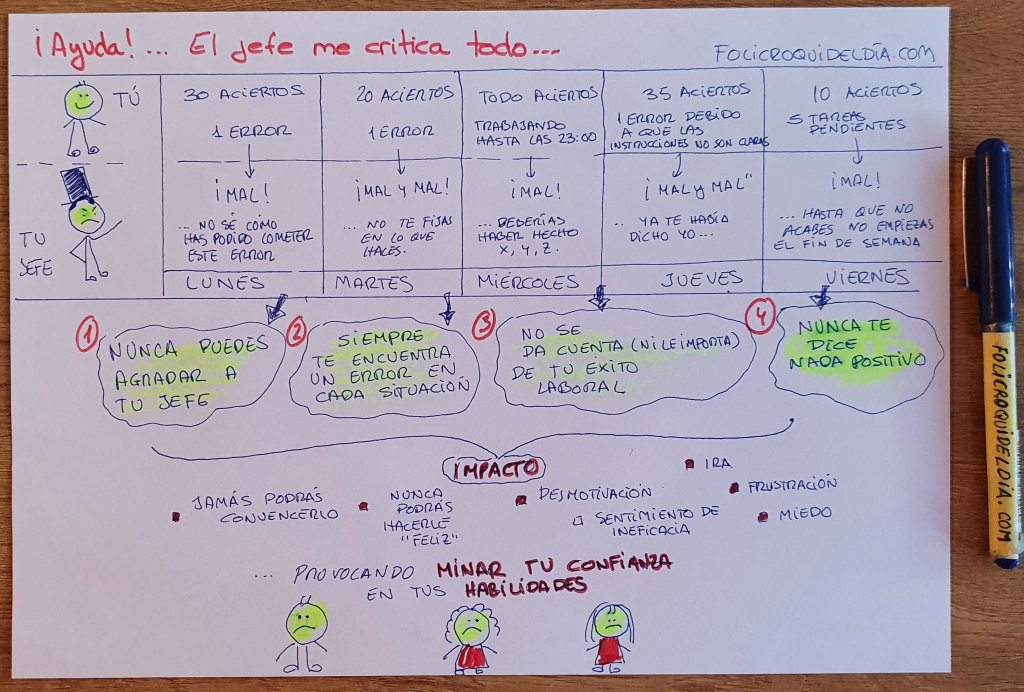 ¡Ayuda!... El jefe me critica todo...
FOLICROQUIDELDÍA.COM
TÚ
30 ACIERTOS
1 ERROR
20 ACIERTOS
1 ERROR
TODO ACIERTOS
TRABAJANDO
HASTA LAS 23:00
35 ACIERTOS
1 ERROR DEBIDO
A QUE LAS
INSTRUCCIONES NO SON CLARAS
10 ACIERTOS
5 TAREAS
PENDIENTES
TU
JEFE
¡MAL!
... NO SÉ CÓMO
HAS PODIDO COMETER
ESTE ERROR
¡MAL Y MAL!
... NO TE FIJAS
EN LO QUE
HACES.
¡MAL!
... DEBERÍAS
HABER HECHO
X, Y, Z.
¡MAL y MAL"
.. YA TE HABÍA
DICHO YO...
¡MAL!
... HASTA QUE NO
ACABES NO EMPIEZAS
EL FIN DE SEMANA
LUNES
MARTES
MIÉRCOLES
JUEVES
VIERNES
1
NUNCA PUEDES
AGRADAR A
TU JEFE
2
SIEMPRE
TE ENCUENTRA
UN ERROR EN
CADA SITUACIÓN
3
NO SE
DA CUENTA (NI LE IMPORTA)
DE TU ÉXITO
LABORAL
4
NUNCA TE
DICE
NADA POSITIVO
IMPACTO
JAMÁS PODRÁS
CONVENCERLO
NUNCA
PODRÁS
HACERLE
"FELIZ"
DESMOTIVACIÓN
SENTIMIENTO DE
INEFICACIA
IRA
FRUSTRACIÓN
MIEDO
... PROVOCANDO MINAR TU CONFIANZA
EN TUS HABILIDADES
FOLICROQUIDELDÍA.COM